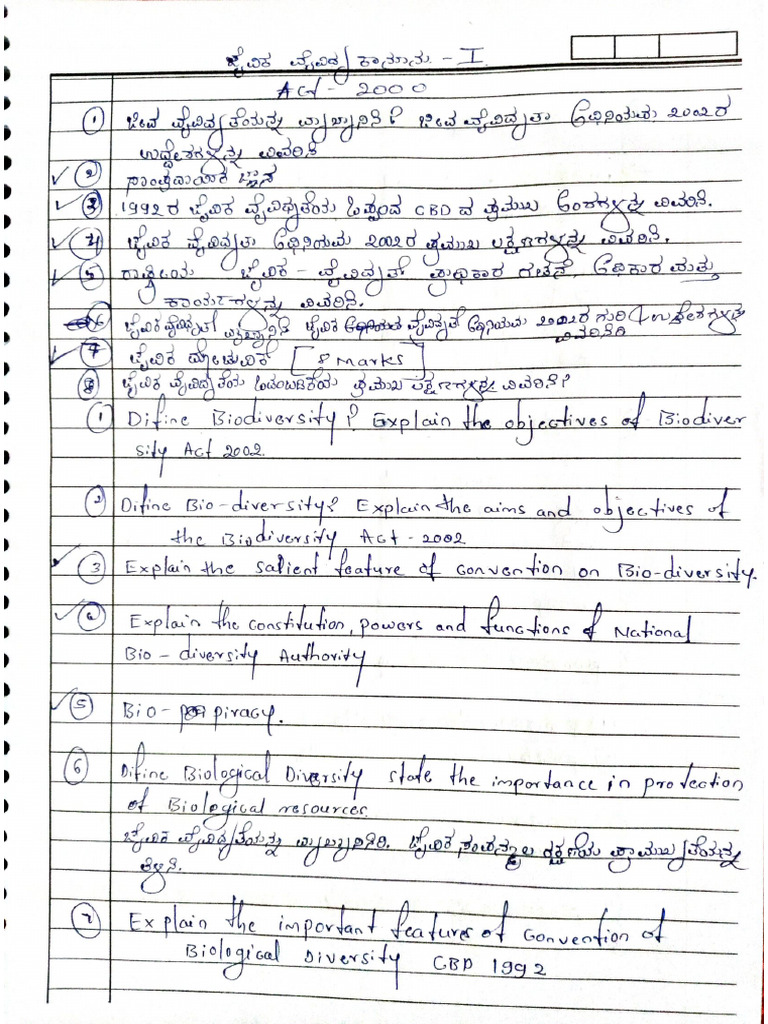 ಜೈವಿಕ ವೈವಿದ್ಯ ಕಾನೂನು - I
Act - 2000
① ಜೀವ ವೈವಿದ್ಯತೆಯನ್ನು ವ್ಯಾಖ್ಯಾನಿಸಿ? ಜೀವ ವೈವಿದ್ಯತಾ ಅಧಿನಿಯಮ 2002ರ
ಉದ್ದೇಶಗಳನ್ನು ವಿವರಿಸಿ
② ಸಾಂಪ್ರದಾಯಿಕ ಜ್ಞಾನ
③ 1992ರ ಜೈವಿಕ ವೈವಿಧ್ಯತೆಯ ಒಪ್ಪಂದ CBD ಯ ಪ್ರಮುಖ ಅಂಶಗಳನ್ನು ವಿವರಿಸಿ.
④ ಜೈವಿಕ ವೈವಿದ್ಯತಾ ಅಧಿನಿಯಮ 2002ರ ಪ್ರಮುಖ ಲಕ್ಷಣಗಳನ್ನು ವಿವರಿಸಿ.
⑤ ರಾಷ್ಟ್ರೀಯ ಜೈವಿಕ - ವೈವಿದ್ಯತ್ ಪ್ರಾಧಿಕಾರ ರಚನೆ, ಅಧಿಕಾರ ಮತ್ತು
ಕಾರ್ಯಗಳನ್ನು ವಿವರಿಸಿ.
6 ಜೈವಿಕ ವೈವಿಧ್ಯತೆ ವ್ಯಾಖ್ಯಾನಿಸಿ ಜೈವಿಕ ವೈವಿದ್ಯತೆ ಅಧಿನಿಯಮ 2002ರ ಗುರಿ & ಉದ್ದೇಶಗಳನ್ನು
ವಿವರಿಸಿರಿ
⑦ ಜೈವಿಕ [8 Marks]
⑧ ಜೈವಿಕ ವೈವಿದ್ಯತೆಯ ಒಡಂಬಡಿಕೆಯ ಪ್ರಮುಖ ಲಕ್ಷಣಗಳನ್ನು ವಿವರಿಸಿ?
① Difine Biodiversity? Explain the objectives of Biodiver
sity Act 2002.
② Difine Bio-diversity? Explain the aims and objectives of
the Biodiversity Act - 2002
③ Explain the salient feature of convention on Bio-diversity.
④ Explain the constitution, powers and functions of National
Bio - diversity Authority
⑤ Bio - piracy.
⑥ Difine Biological Diversity state the importance in protection
of Biological resources.
ಜೈವಿಕ ವೈವಿದ್ಯತೆಯನ್ನು ವ್ಯಾಖ್ಯಾನಿಸಿರಿ. ಜೈವಿಕ ಸಂಪನ್ಮೂಲ ರಕ್ಷಣೆಯ ಪ್ರಾಮುಖ್ಯತೆಯನ್ನು
ತಿಳಿಸಿ.
⑦ Explain the important features of Convention of
Biological Diversity CBD 1992